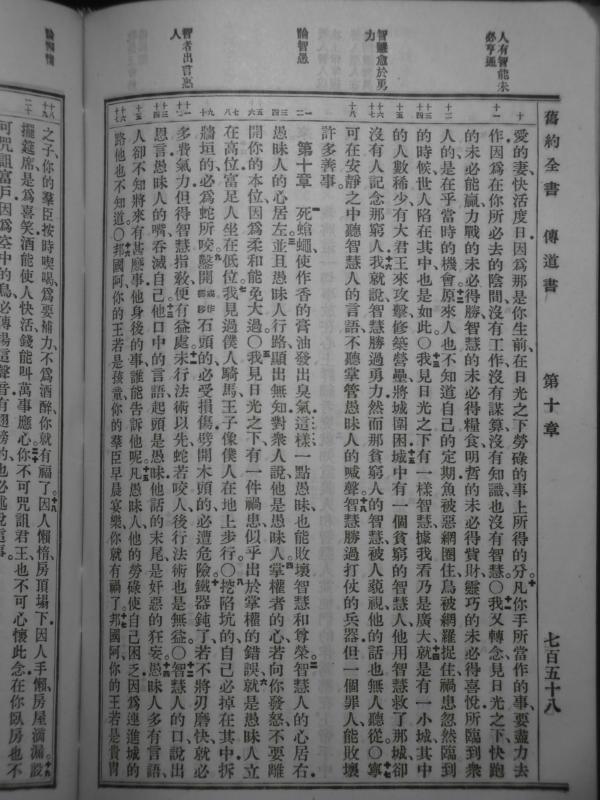 舊約全書　傳道書　第十章　七百五十八
人有智能未必亨通
智慧愈於勇力
論智愚
智者出言惠人
十
十一
十二
十三
十四
十五
十六
十七
十八
愛的妻快活度日因爲那是你生前在日光之下勞碌的事上所得的分凡你手所當作的事要盡力去
作因爲在你所必去的陰間沒有工作沒有謀算沒有知識也沒有智慧○我又轉念見日光之下快跑
的未必能贏力戰的未必得勝智慧的未必得糧食明哲的未必得貲財靈巧的未必得喜悅所臨到衆
人的是在乎當時的機會原來人也不知道自己的定期魚被惡網圈住鳥被網羅捉住禍患忽然臨到
的時候世人陷在其中也是如此○我見日光之下有一樣智慧據我看乃是廣大就是有一小城其中
的人數稀少有大君王來攻擊修築營壘將城圍困城中有一個貧窮的智慧人他用智慧救了那城卻
沒有人記念那窮人我就說智慧勝過勇力然而那貧窮人的智慧被人藐視他的話也無人聽從○寧
可在安靜之中聽智慧人的言語不聽掌管愚昧人的喊聲智慧勝過打仗的兵器但一個罪人能敗壞
許多善事
第十章　死蒼蠅使作香的膏油發出臭氣這樣一點愚昧也能敗壞智慧和尊榮智慧人的心居右
愚昧人的心居左並且愚昧人行路顯出無知對衆人說他是愚昧人掌權者的心若向你發怒不要離
開你的本位因爲柔和能免大過○我見日光之下有一件禍患似乎出於掌權的錯誤就是愚昧人立
在高位富足人坐在低位我見過僕人騎馬王子像僕人在地上步行○挖陷坑的自己必掉在其中拆
牆垣的必爲蛇所咬鑿開石頭的必受損傷劈開木頭的必遭危險鐵器鈍了若不將刃磨快就必
多費氣力但得智慧指教便有益處未行法術以先蛇若咬人後行法術也是無益○智慧人的口說出
恩言愚昧人的嘴吞滅自己他口中的言語起頭是愚昧他話的末尾是奸惡的狂妄愚昧人多有言語
人卻不知將來有甚麼事他身後的事誰能告訴他呢凡愚昧人他的勞碌使自己困乏因爲連進城的
路他也不知道○邦國阿你的王若是孩童你的羣臣早晨宴樂你就有禍了邦國阿你的王若是貴冑
之子你的羣臣按時喫喝爲要補力不爲酒醉你就有福了因人懶惰房頂塌下因人手懶房屋滴漏設
擺筵席是爲喜笑酒能使人快活錢能叫萬事應心你不可咒詛君王也不可心懷此念在你臥房也不
可咒詛富戶因爲空中的鳥必傳揚這聲音有翅膀的也必述說這事